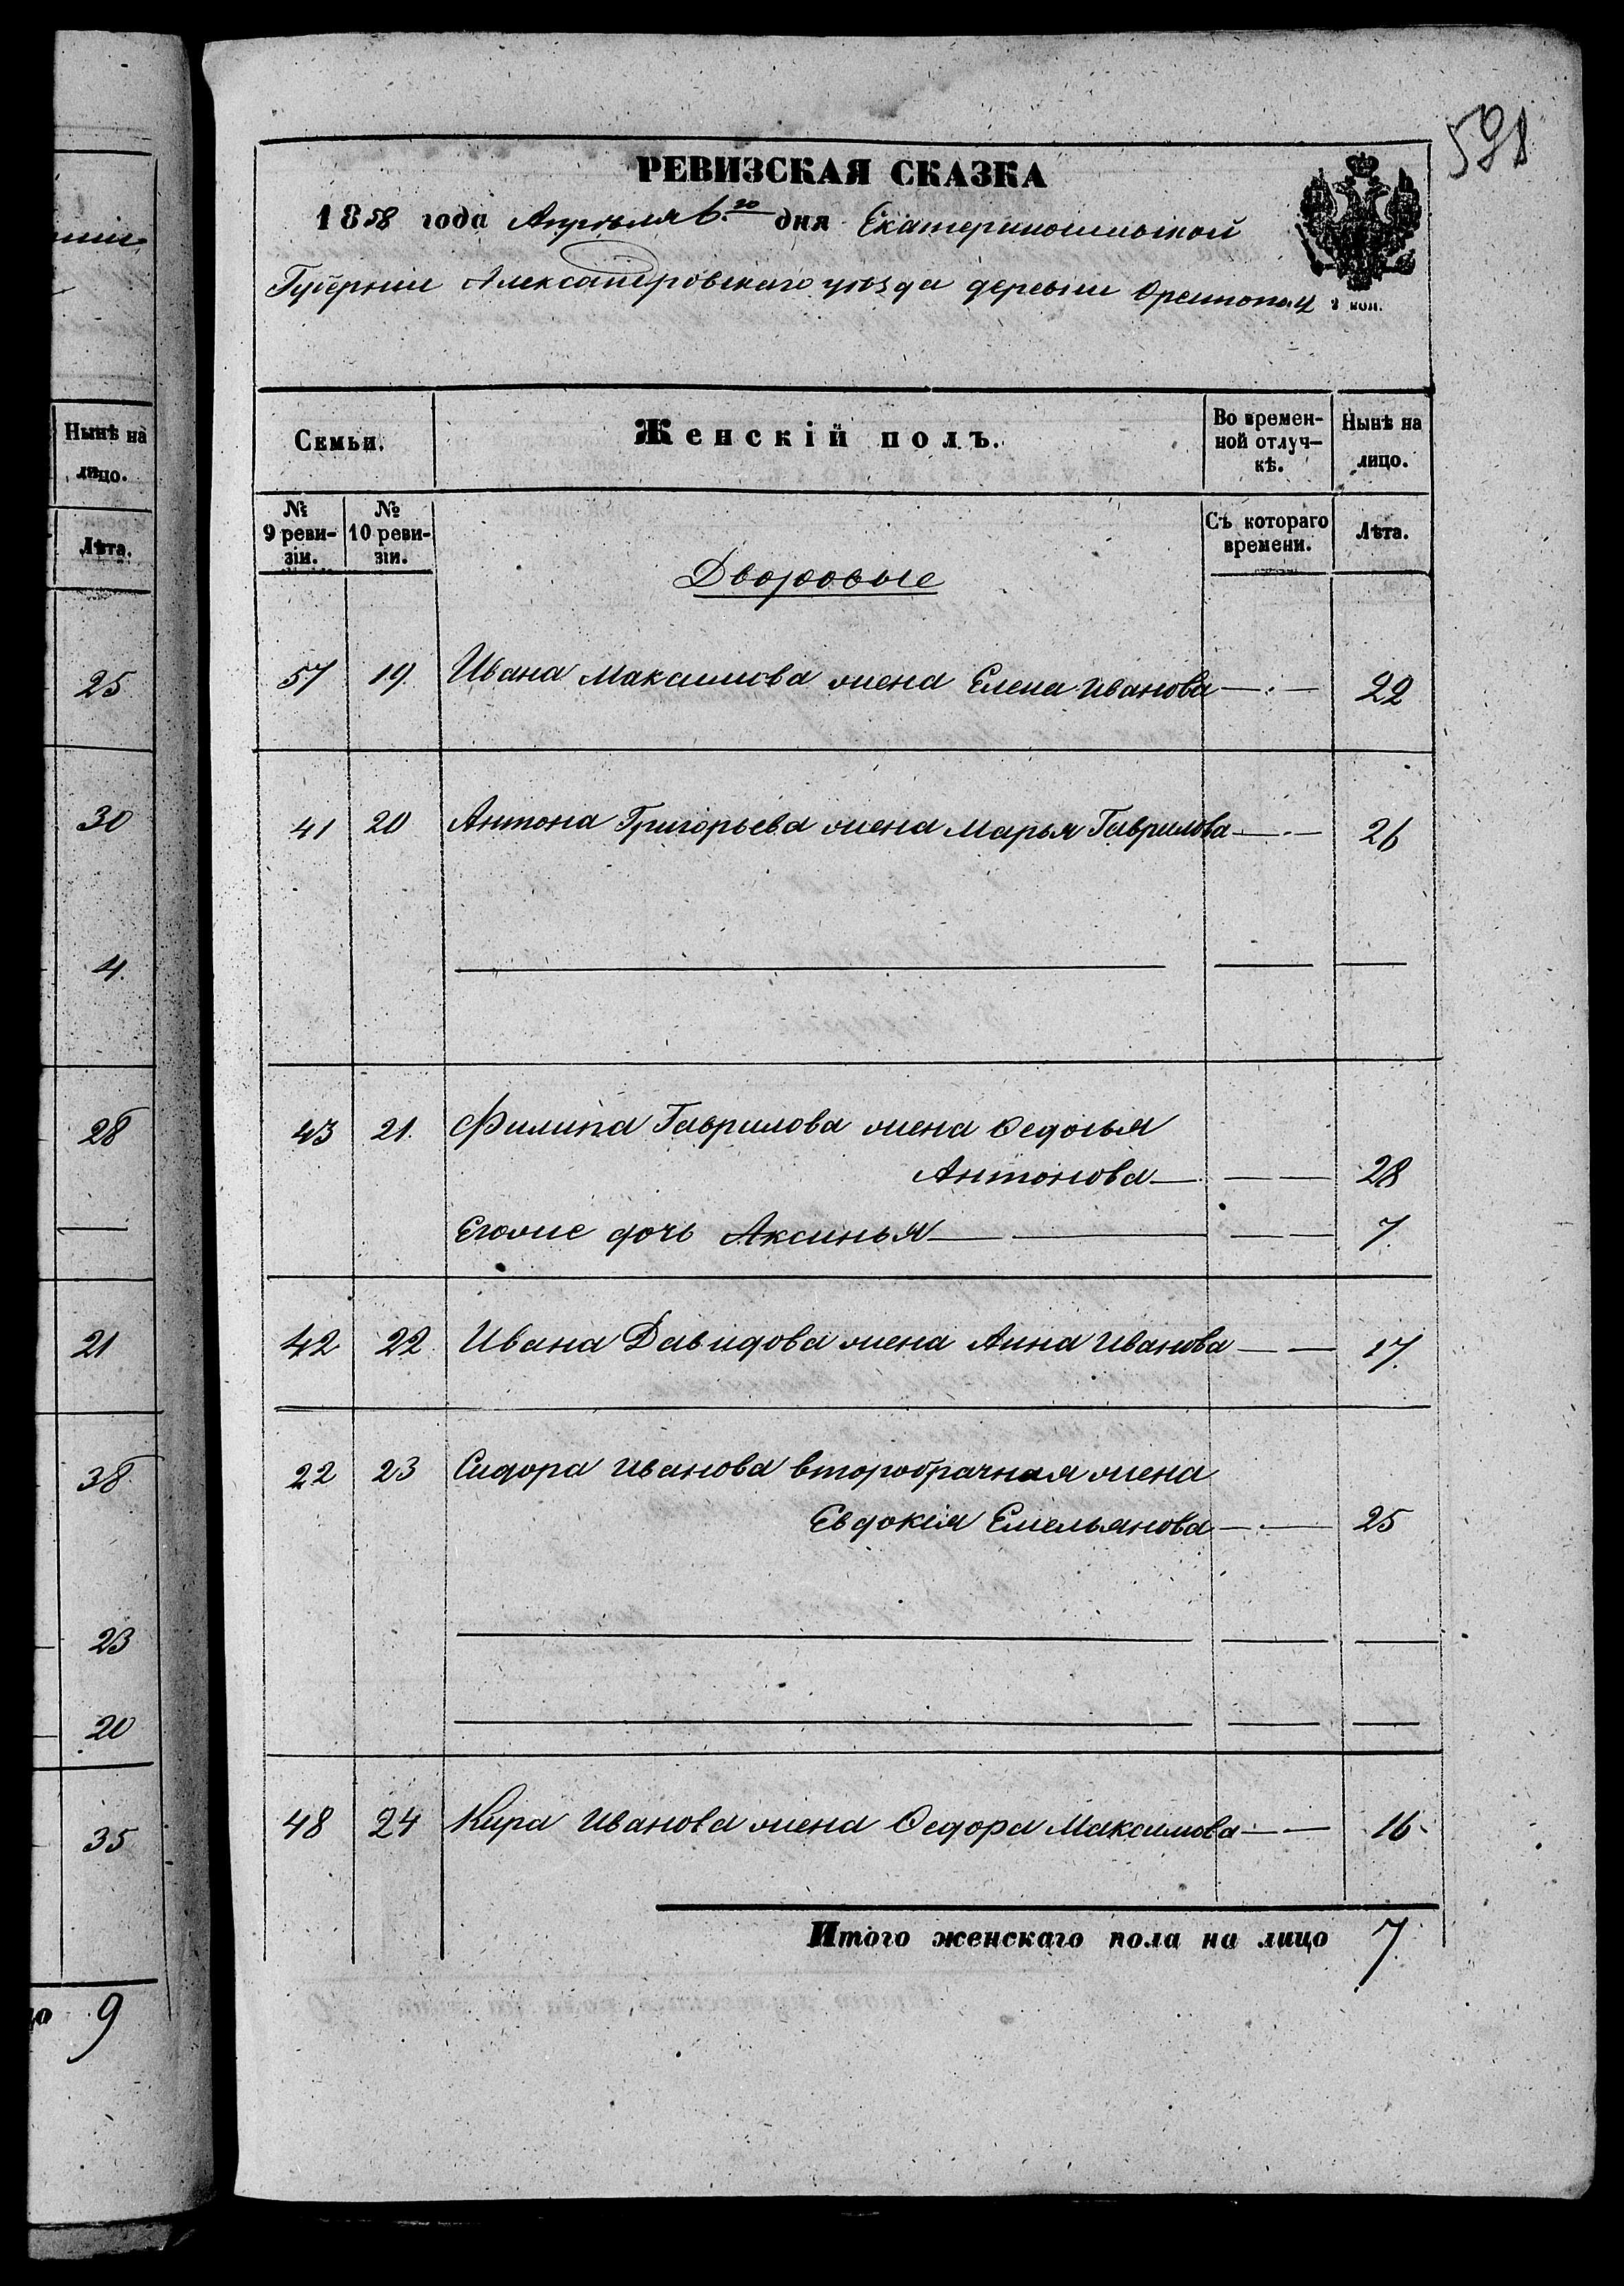 ніи
Нынѣ на
лицо.
Лѣта.
25
30
4.
28
21
38
23
20
35
9
РЕВИЗСКАЯ СКАЗКА
1858 года Апрѣля 6.го дня Екатеринославской
Губерніи Александровскаго уѣзда деревни
3 коп.
Семьи. Женскій полъ. Во времен-
ной отлуч-
кѣ. Нынѣ на
лицо.
№
9 реви-
зіи. №
10 реви-
зіи. Съ котораго
времени. Лѣта.
Дворовые
57 19. Ивана Максимова жена Елена Иванова 22
41 20 Антона Григорьева жена Марья Гаврилова 26
43 21. Филипа Гаврилова жена Ѳедосья
Антонова 28
Егоже дочь Аксинья 7
42 22 Ивана Давидова жена Анна Иванова 17.
22 23 Сидора Иванова второбрачная жена
Евдокія Емельянова 25
48 24 Кира Иванова жена Ѳедора Максимова 16
Итого женскаго пола на лицо 7